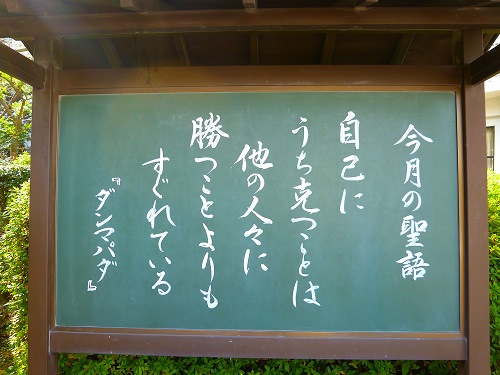 今月の聖語
自己に
うち克つことは
他の人々に
勝つことよりも
すぐれている
『ダンマパダ』